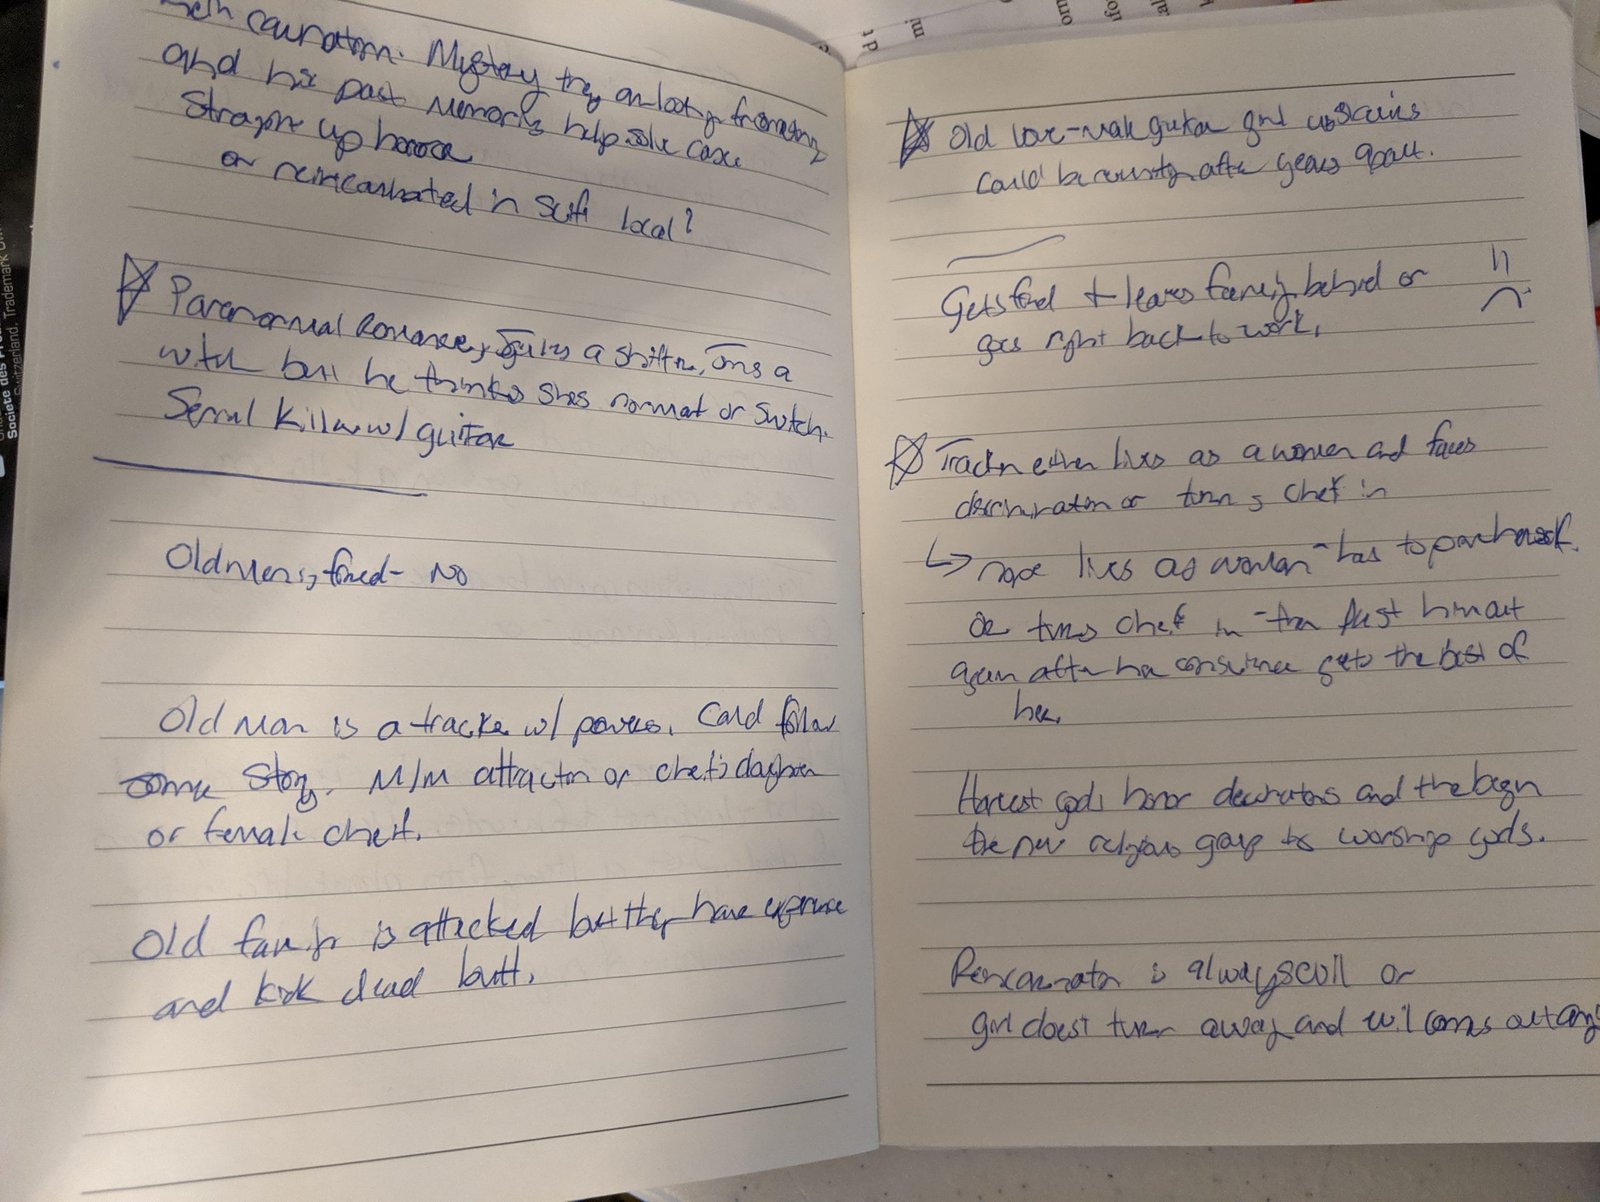 Mystery they on looking from
and his past memories help solve case
Straight up horror
or reincarnated in Scifi local?
Paranormal Romance, guy is a shifter, one's a
witch but he thinks shes normal or switch.
Serial Killer w/ guitar
Old men is fired - No
Old man is a tracker w/ powers. Could follow
some story. M/M attraction or chef's daughter
or female chef.
Old family is attacked but they have experience
and kick dead butt.
Old love - male guitar girl
Could be reuniting after years apart.
Gets fired + leaves family behind or
goes right back to work.
Tracker either lives as a women and faces
discrimination or turns chef in
nope lives as woman - has to
or turns chef in - then him out
again after her conscience gets the best of
her.
Harvest gods honor decorations and the begin
the new religious group to worship gods.
Reincarnation is always evil or
girl doesn't turn away and will comes out
Societe des
Switzerland. Trademark